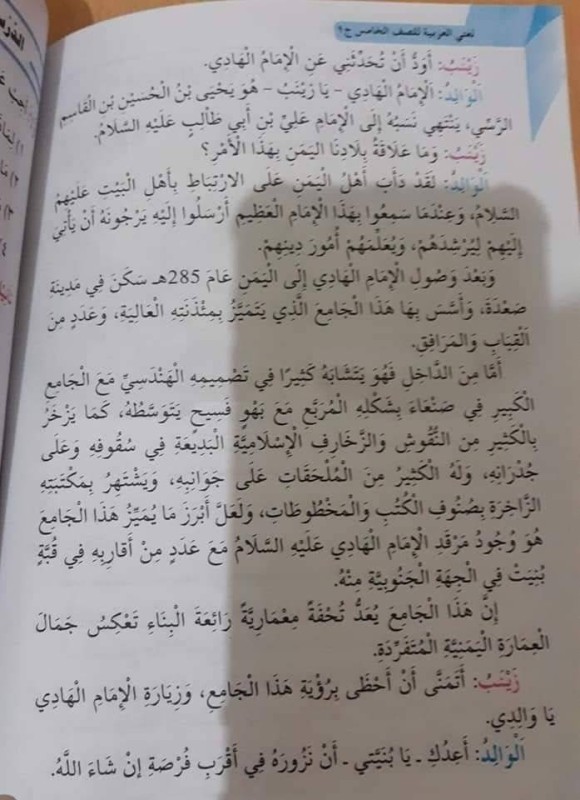 لغتي العربية للصف الخامس ج٢
زَيْنَبُ: أَوَدُّ أَنْ تُحَدِّثَنِي عَنِ الْإِمَامِ الْهَادِي.
الْوَالِدُ: الْإِمَامُ الْهَادِي - يَا زَيْنَبُ - هُوَ يَحْيَى بْنُ الْحُسَيْنِ بْنِ الْقَاسِمِ
الرَّسِّي، يَنْتَهِي نَسَبُهُ إِلَى الْإِمَامِ عَلِيِّ بْنِ أَبِي طَالِبٍ عَلَيْهِ السَّلَامُ.
زَيْنَبُ: وَمَا عَلَاقَةُ بِلَادِنَا الْيَمَنِ بِهَذَا الْأَمْرِ؟
الْوَالِدُ: لَقَدْ دَأَبَ أَهْلُ الْيَمَنِ عَلَى الِارْتِبَاطِ بِأَهْلِ الْبَيْتِ عَلَيْهِمُ
السَّلَامُ، وَعِنْدَمَا سَمِعُوا بِهَذَا الْإِمَامِ الْعَظِيمِ أَرْسَلُوا إِلَيْهِ يَرْجُونَهُ أَنْ يَأْتِيَ
إِلَيْهِمْ لِيُرْشِدَهُمْ، وَيُعَلِّمَهُمْ أُمُورَ دِينِهِمْ.
وَبَعْدَ وُصُولِ الْإِمَامِ الْهَادِي إِلَى الْيَمَنِ عَامَ 285هـ سَكَنَ فِي مَدِينَةِ
صَعْدَةَ، وَأَسَّسَ بِهَا هَذَا الْجَامِعَ الَّذِي يَتَمَيَّزُ بِمِئْذَنَتِهِ الْعَالِيَةِ، وَعَدَدٍ مِنَ
الْقِبَابِ وَالْمَرَافِقِ.
أَمَّا مِنَ الدَّاخِلِ فَهُوَ يَتَشَابَهُ كَثِيرًا فِي تَصْمِيمِهِ الْهَنْدَسِيِّ مَعَ الْجَامِعِ
الْكَبِيرِ فِي صَنْعَاءَ بِشَكْلِهِ الْمُرَبَّعِ مَعَ بَهْوٍ فَسِيحٍ يَتَوَسَّطُهُ، كَمَا يَزْخَرُ
بِالْكَثِيرِ مِنَ النُّقُوشِ وَالزَّخَارِفِ الْإِسْلَامِيَّةِ الْبَدِيعَةِ فِي سُقُوفِهِ وَعَلَى
جُدْرَانِهِ، وَلَهُ الْكَثِيرُ مِنَ الْمُلْحَقَاتِ عَلَى جَوَانِبِهِ، وَيَشْتَهِرُ بِمَكْتَبَتِهِ
الزَّاخِرَةِ بِصُنُوفِ الْكُتُبِ وَالْمَخْطُوطَاتِ، وَلَعَلَّ أَبْرَزَ مَا يُمَيِّزُ هَذَا الْجَامِعَ
هُوَ وُجُودُ مَرْقَدِ الْإِمَامِ الْهَادِي عَلَيْهِ السَّلَامُ مَعَ عَدَدٍ مِنْ أَقَارِبِهِ فِي قُبَّةٍ
بُنِيَتْ فِي الْجِهَةِ الْجَنُوبِيَّةِ مِنْهُ.
إِنَّ هَذَا الْجَامِعَ يُعَدُّ تُحْفَةً مِعْمَارِيَّةً رَائِعَةَ الْبِنَاءِ تَعْكِسُ جَمَالَ
الْعِمَارَةِ الْيَمَنِيَّةِ الْمُتَفَرِّدَةِ.
زَيْنَبُ: أَتَمَنَّى أَنْ أَحْظَى بِرُؤْيَةِ هَذَا الْجَامِعِ، وَزِيَارَةِ الْإِمَامِ الْهَادِي
يَا وَالِدِي.
الْوَالِدُ: أَعِدُكِ - يَا بُنَيَّتِي - أَنْ نَزُورَهُ فِي أَقْرَبِ فُرْصَةٍ إِنْ شَاءَ اللَّهُ.